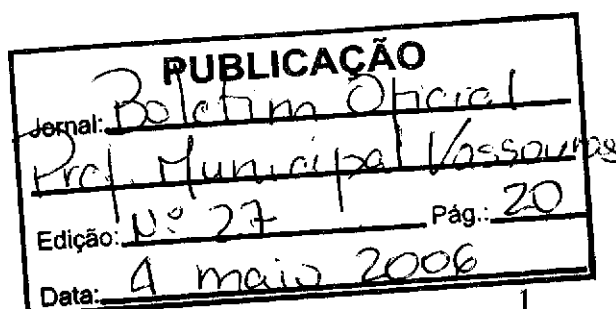 PUBLICAÇÃO
Jornal: Boletim Oficial
Pref. Municipal Vassouras
Edição: Nº 27 Pág.: 20
Data: 4 maio 2006
1